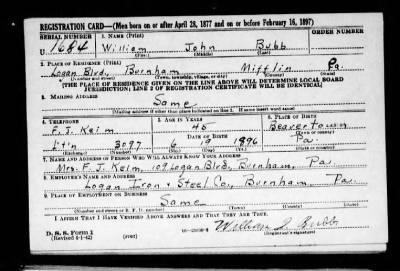 REGISTRATION CARD—(Men born on or after April 28, 1877 and on or before February 16, 1897)
SERIAL NUMBER 1. NAME (Print) ORDER NUMBER
U 1684 William John Bubb
(First) (Middle) (Last)
2. PLACE OF RESIDENCE (Print)
Logan Blvd., Burnham Mifflin Pa.
(Number and street) (Town, township, village, or city) (County) (State)
[THE PLACE OF RESIDENCE GIVEN ON THE LINE ABOVE WILL DETERMINE LOCAL BOARD
JURISDICTION; LINE 2 OF REGISTRATION CERTIFICATE WILL BE IDENTICAL]
3. MAILING ADDRESS
Same
[Mailing address if other than place indicated on line 2. If same insert word same]
4. TELEPHONE 5. AGE IN YEARS 6. PLACE OF BIRTH
F. J. Keim 45 Beavertown
DATE OF BIRTH (Town or county)
3097 6 19 1896 Pa.
(Exchange) (Number) (Mo.) (Day) (Yr.) (State or country)
7. NAME AND ADDRESS OF PERSON WHO WILL ALWAYS KNOW YOUR ADDRESS
Mrs. F. J. Keim, 109 Logan Blvd., Burnham, Pa.
8. EMPLOYER'S NAME AND ADDRESS
Logan Iron & Steel Co., Burnham Pa.
9. PLACE OF EMPLOYMENT OR BUSINESS
Same
(Number and street or R. F. D. number) (Town) (County) (State)
I AFFIRM THAT I HAVE VERIFIED ABOVE ANSWERS AND THAT THEY ARE TRUE.
D. S. S. Form 1 William J. Bubb
(Revised 4-1-42) (over) (Registrant's signature)